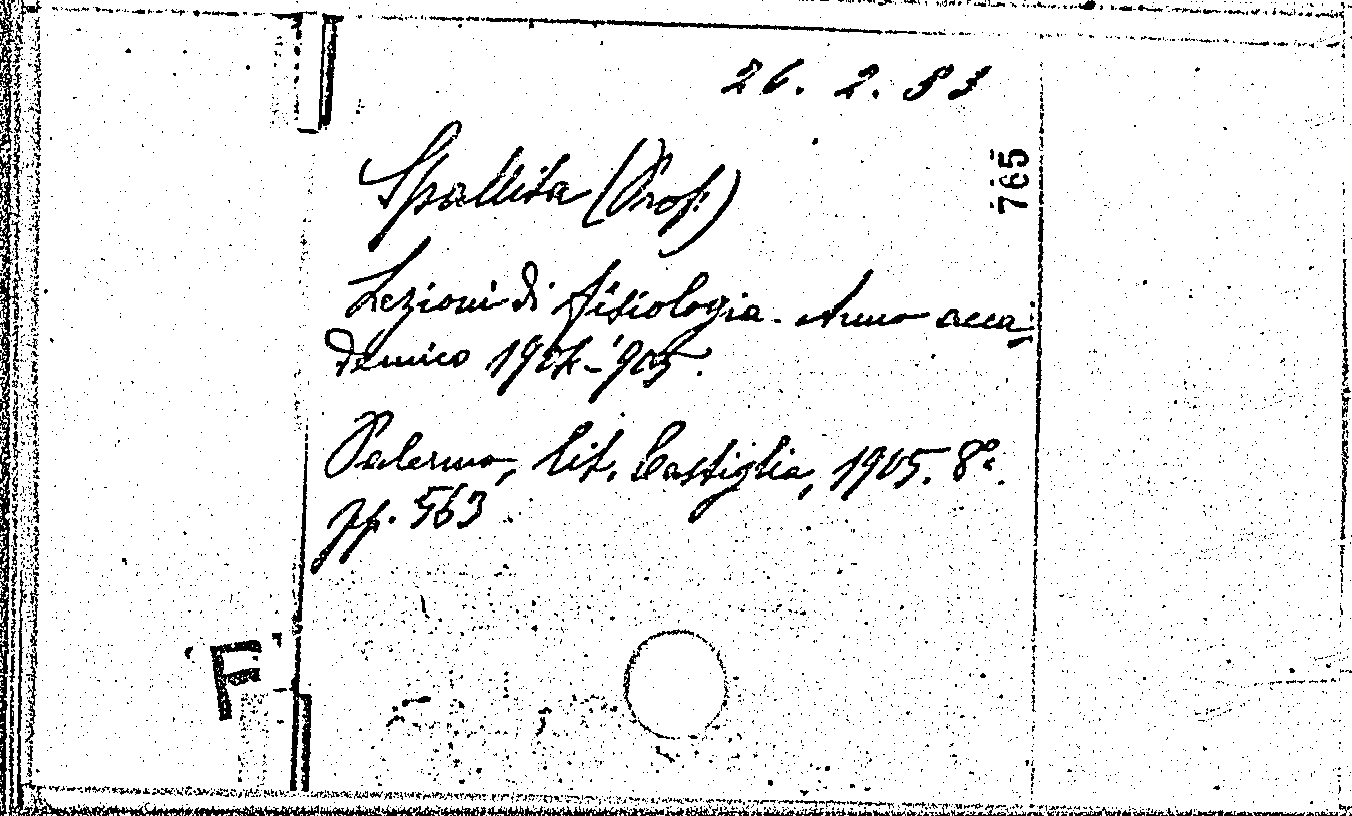 26. 2. 53
765
Spallita (Prof.)
Lezioni di fisiologia. Anno acca-
demico 1904-'905.
Palermo, lit. Castiglia, 1905. 8°.
pp. 563
F